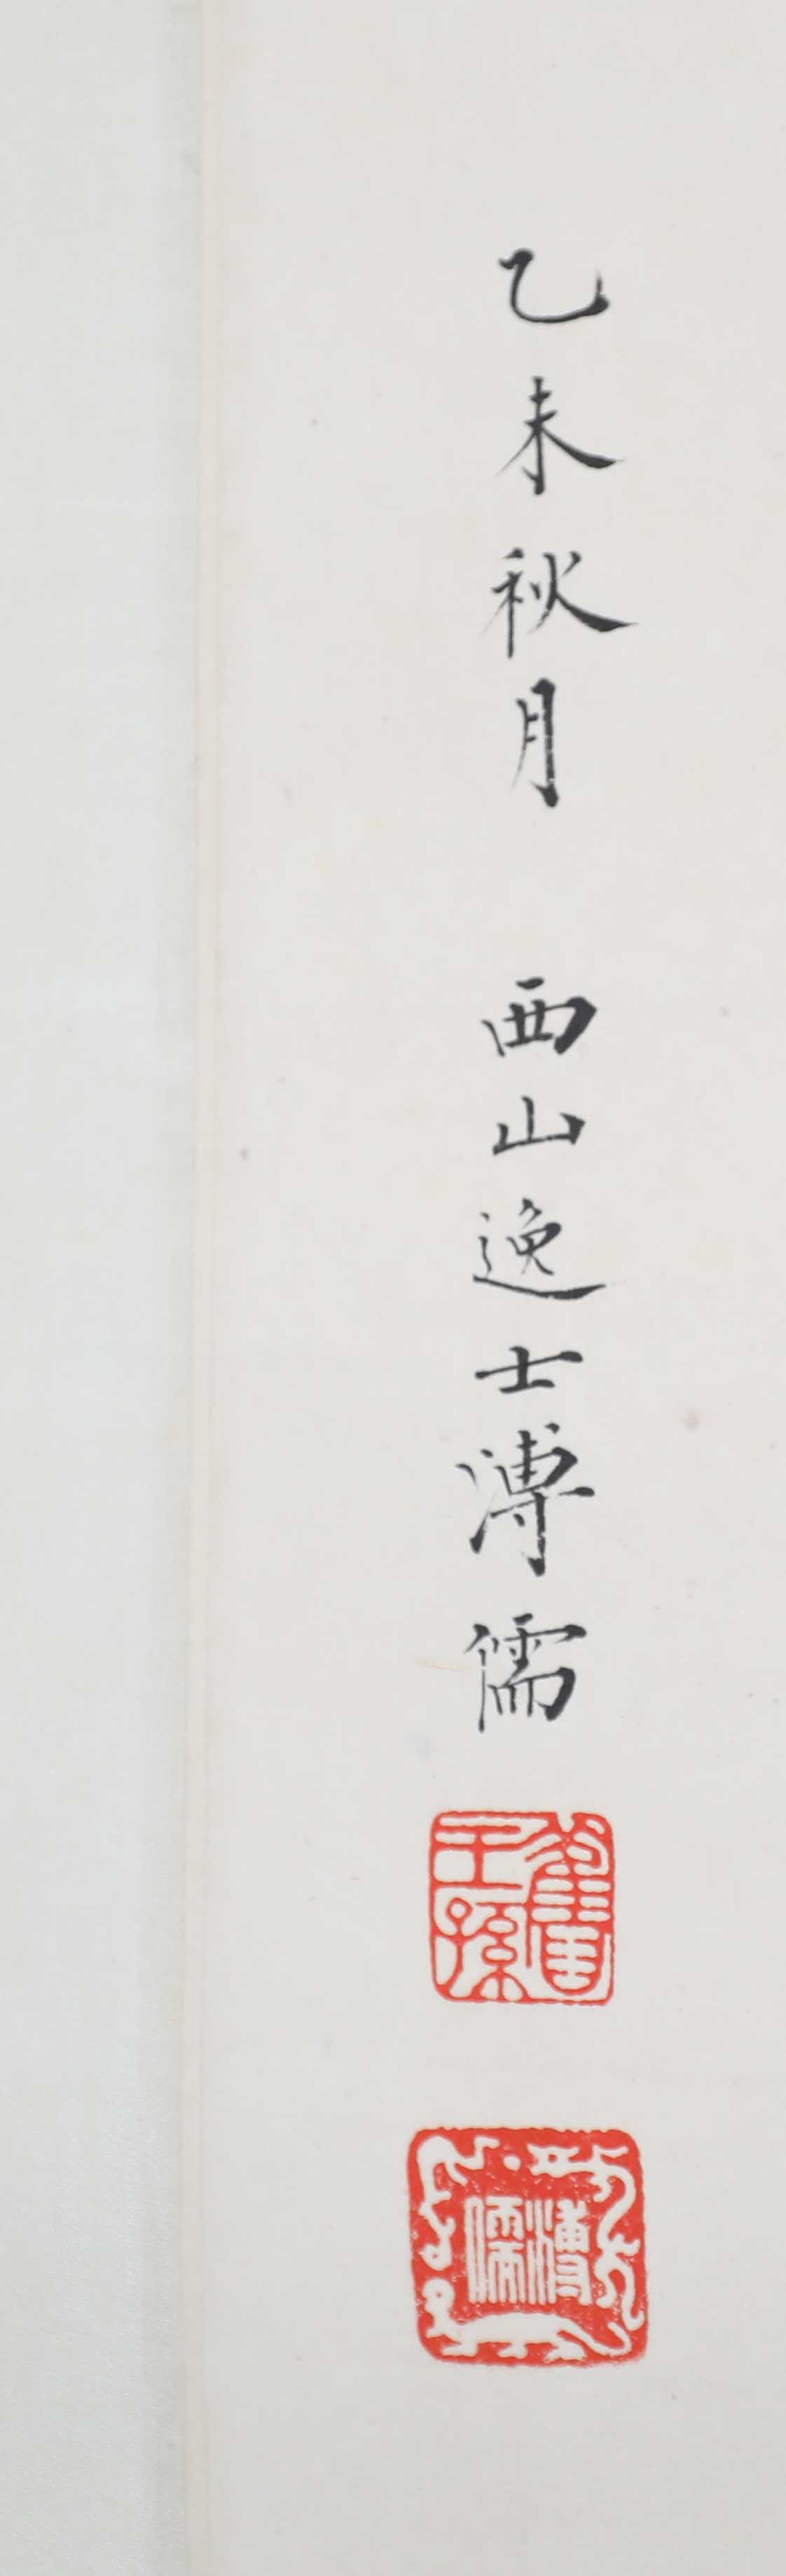 乙未秋月 西山逸士溥儒
舊王孫
溥儒